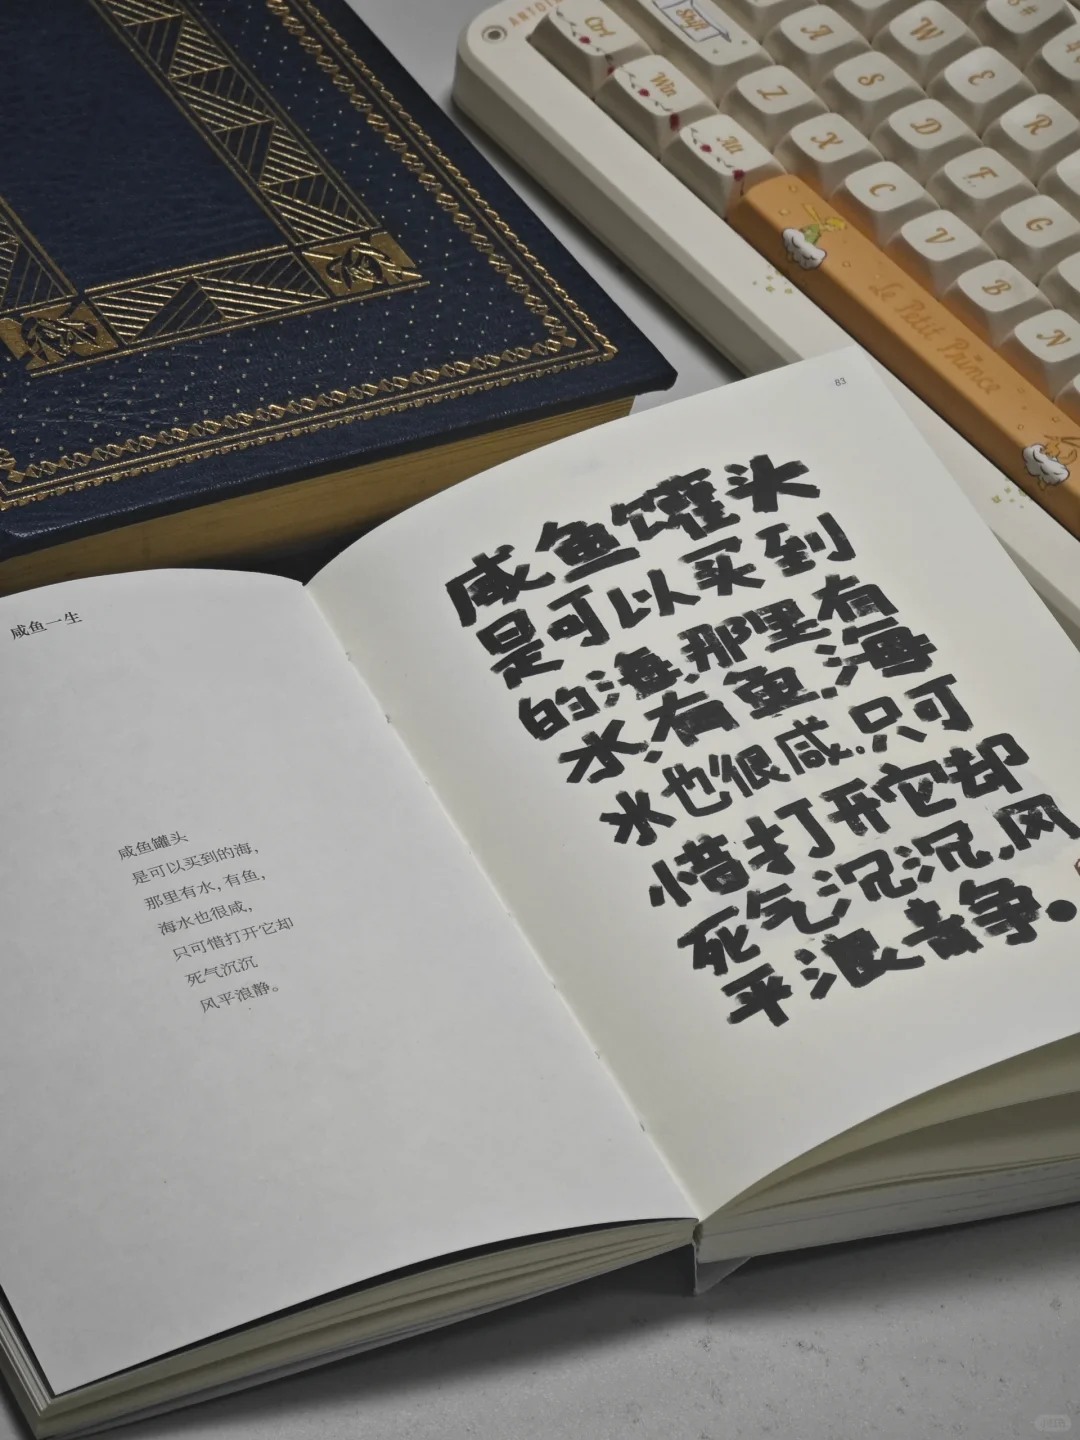 Ctrl
Shift
A
W
Win
Z
S
E
Alt
X
D
R
C
F
V
G
B
N
Le Petit Prince
83
咸鱼一生
咸鱼罐头
是可以买到的海，
那里有水，有鱼，
海水也很咸，
只可惜打开它却
死气沉沉
风平浪静。
咸鱼罐头
是可以买到
的海,那里有
水,有鱼,海
水也很咸。只可
惜打开它却
死气沉沉,风
平浪静.